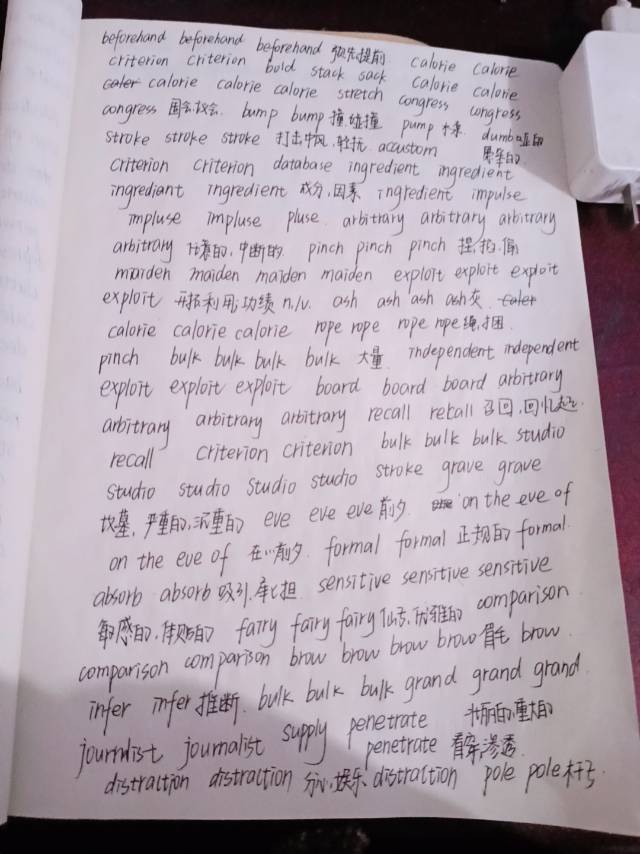 beforehand beforehand beforehand 预先提前 calorie calorie
criterion criterion bold stack sack calorie calorie
caler calorie calorie calorie stretch congress congress
congress 国会,议会. bump bump 撞,碰撞 pump 泵. dumb 哑的
stroke stroke stroke 打击中风,轻抚 accustom
criterion criterion database ingredient ingredient
ingrediant ingredient 成分,因素 ingredient impulse
impluse impluse pluse. arbitrary arbitrary arbitrary
arbitrary 任意的,中断的. pinch pinch pinch 捏,掐,偷
maiden maiden maiden maiden exploit exploit exploit
exploit 开拓利用,功绩 n./v. ash ash ash ash灰. caler
calorie calorie calorie rope rope rope rope 绳,捆.
pinch bulk bulk bulk bulk 大量. independent independent
exploit exploit exploit board board board arbitrary
arbitrary arbitrary arbitrary recall recall 召回,回忆起.
recall criterion criterion bulk bulk bulk studio
studio studio studio studio stroke grave grave
坟墓,严重的,沉重的 eve eve eve 前夕. on the eve of
on the eve of 在…前夕. formal formal 正规的 formal.
absorb absorb 吸引,承担. sensitive sensitive sensitive
敏感的,体贴的 fairy fairy fairy 仙子,优雅的 comparison
comparison comparison brow brow brow brow 眉毛 brow.
infer infer 推断. bulk bulk bulk grand grand grand.
journalist journalist supply penetrate 壮丽的,重大的
penetrate 看穿,渗透.
distraction distraction 分心,娱乐 distraction pole pole 杆子.